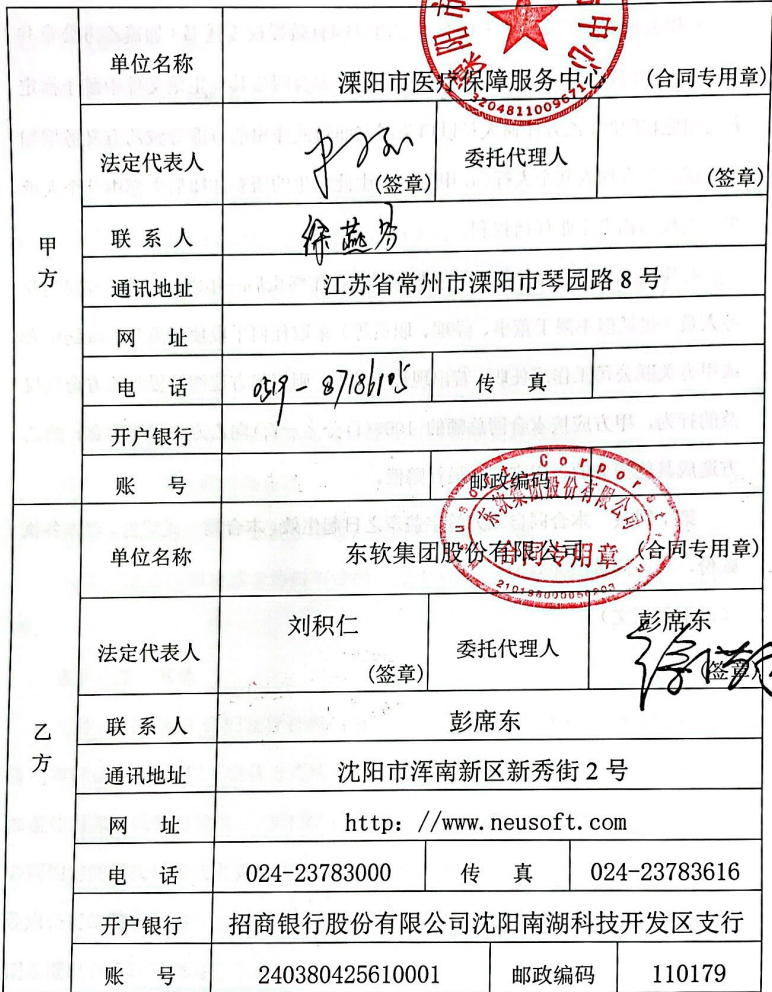 单位名称 溧阳市医疗保障服务中心 (合同专用章)
法定代表人 (签章) 委托代理人 (签章)
甲方
联系人 徐燕
通讯地址 江苏省常州市溧阳市琴园路8号
网 址
电 话 0519-87186105 传 真
开户银行
账 号 邮政编码
单位名称 东软集团股份有限公司 (合同专用章)
东软集团股份有限公司
合同专用章
法定代表人 刘积仁 (签章) 委托代理人 彭席东 (签章)
乙方
联系人 彭席东
通讯地址 沈阳市浑南新区新秀街2号
网 址 http: //www.neusoft.com
电 话 024-23783000 传 真 024-23783616
开户银行 招商银行股份有限公司沈阳南湖科技开发区支行
账 号 240380425610001 邮政编码 110179